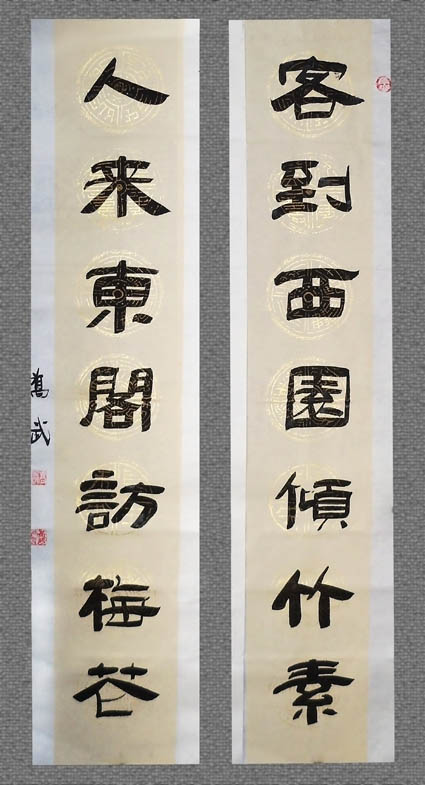 客到西園傾竹素
人来東閣訪梅花